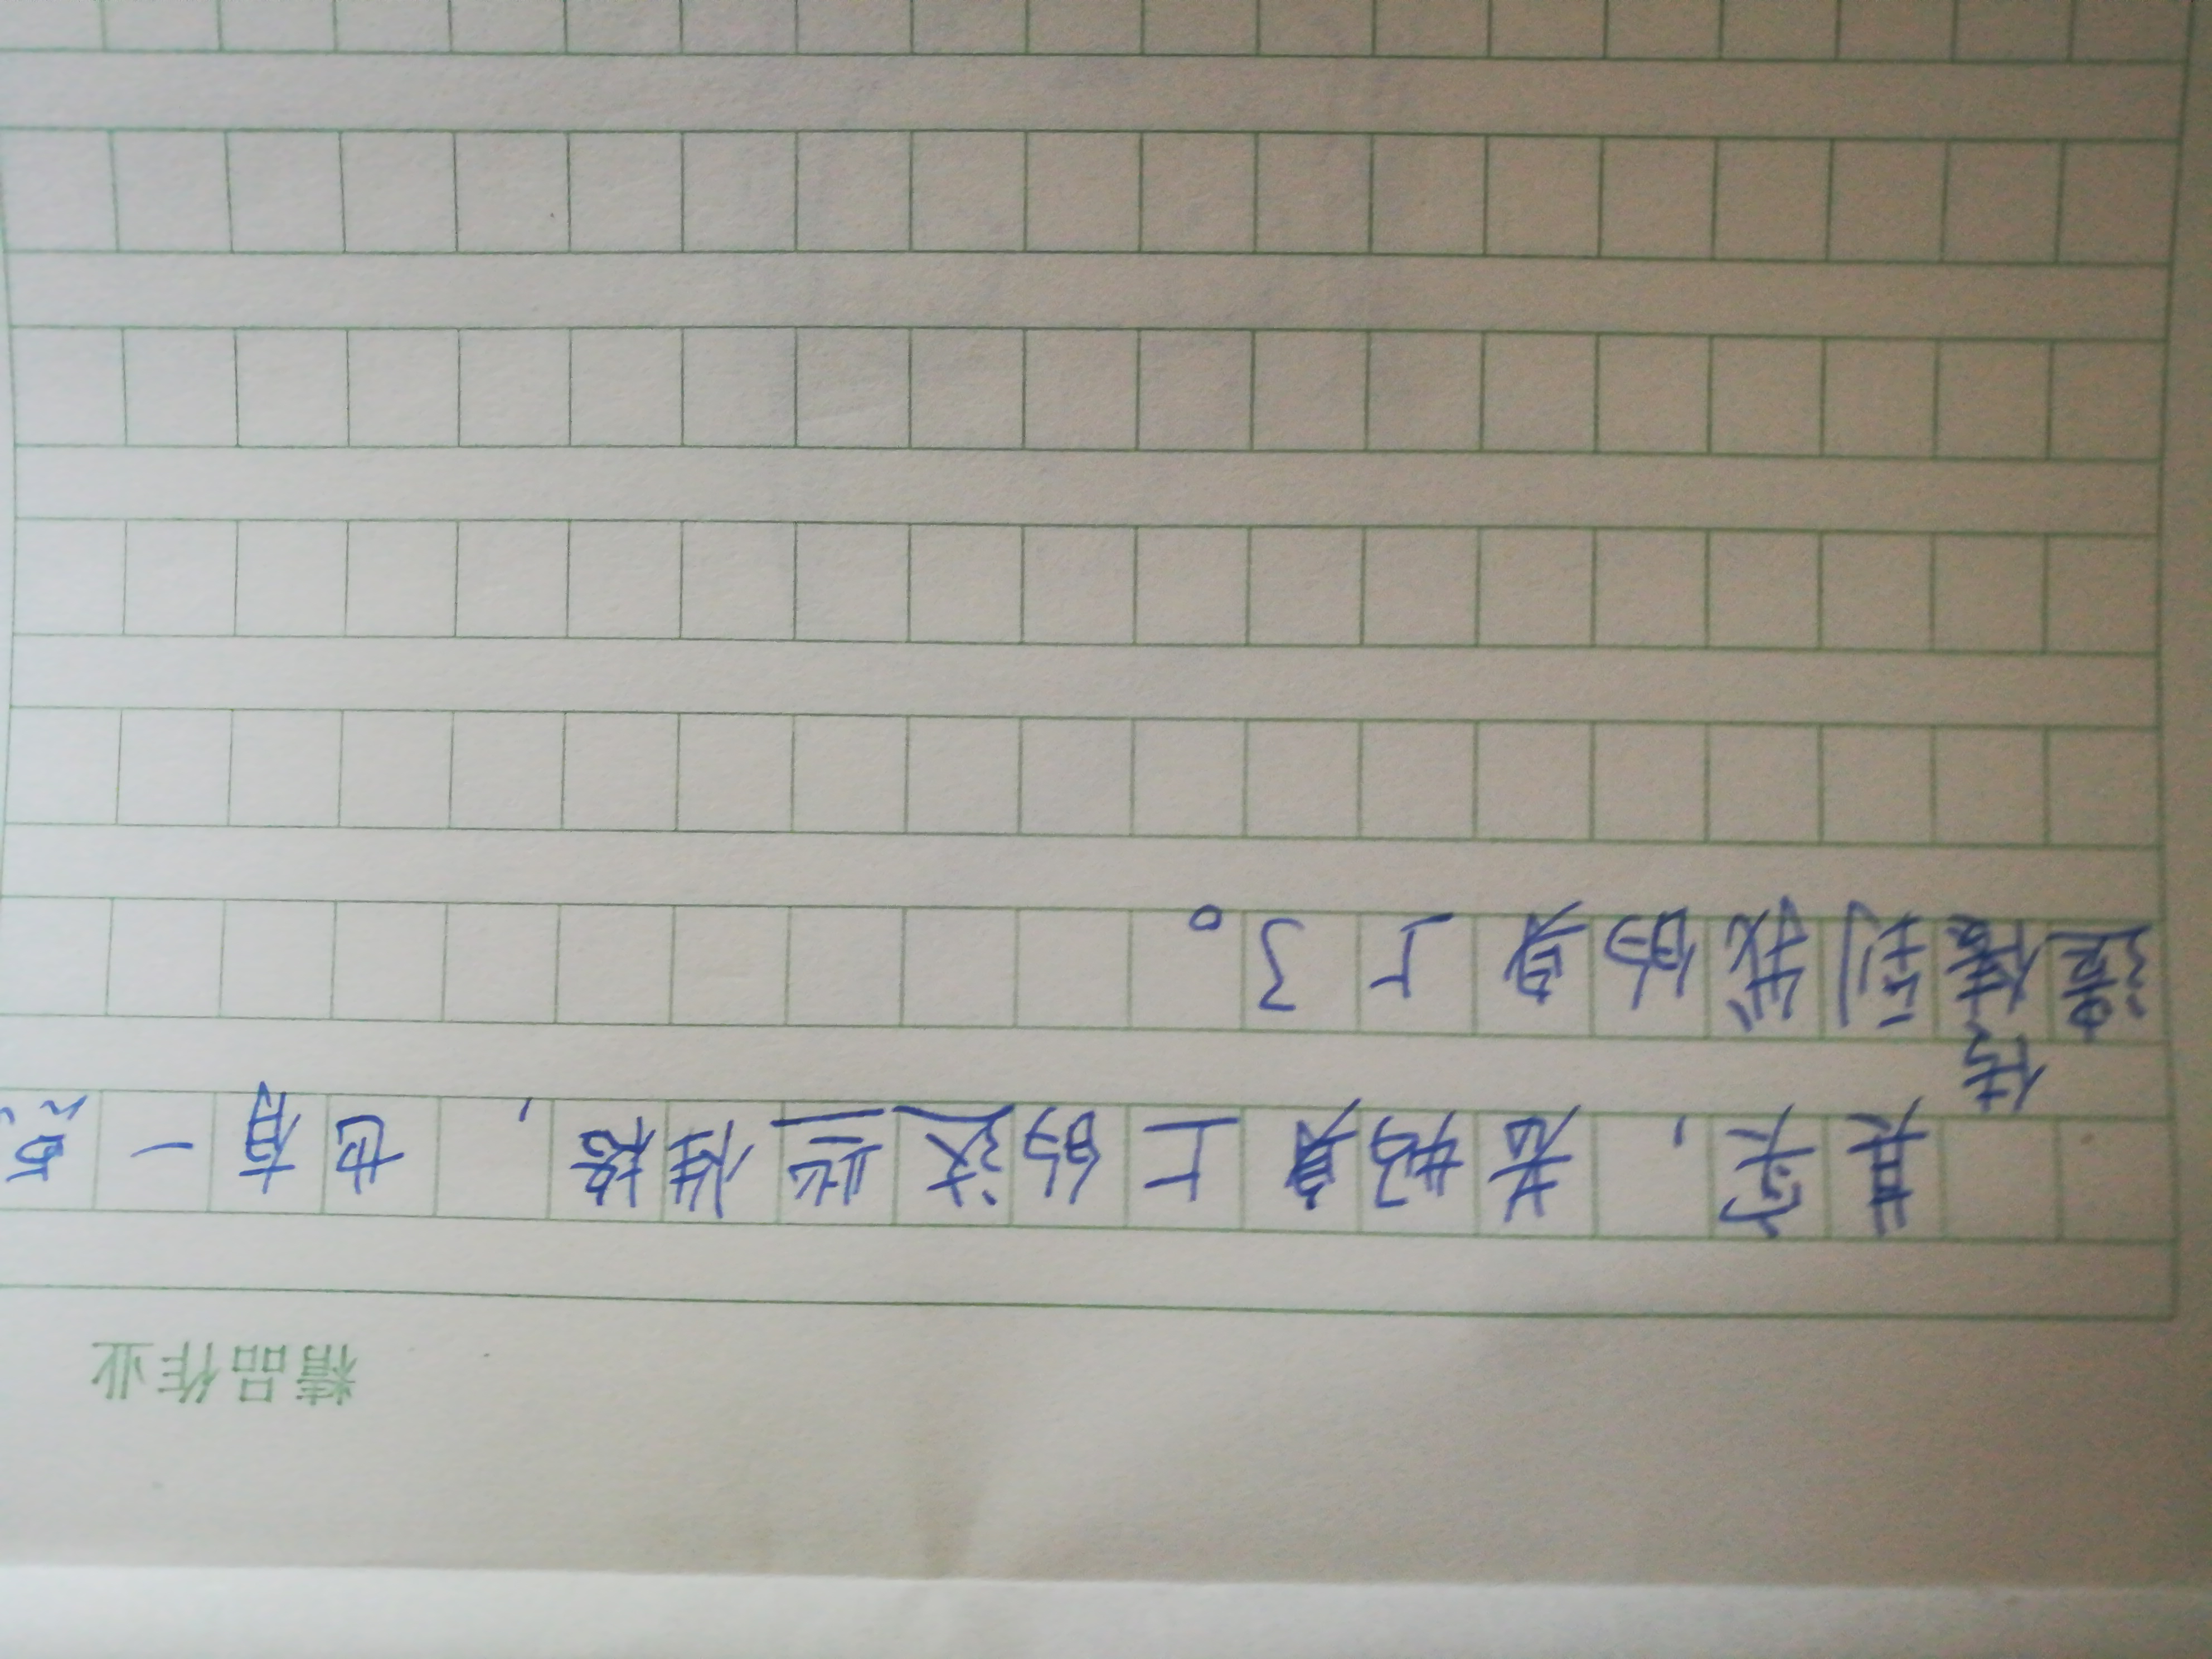 精品作业
其实，老妈身上的这些性格，也有一点
遗传到我的身上了。